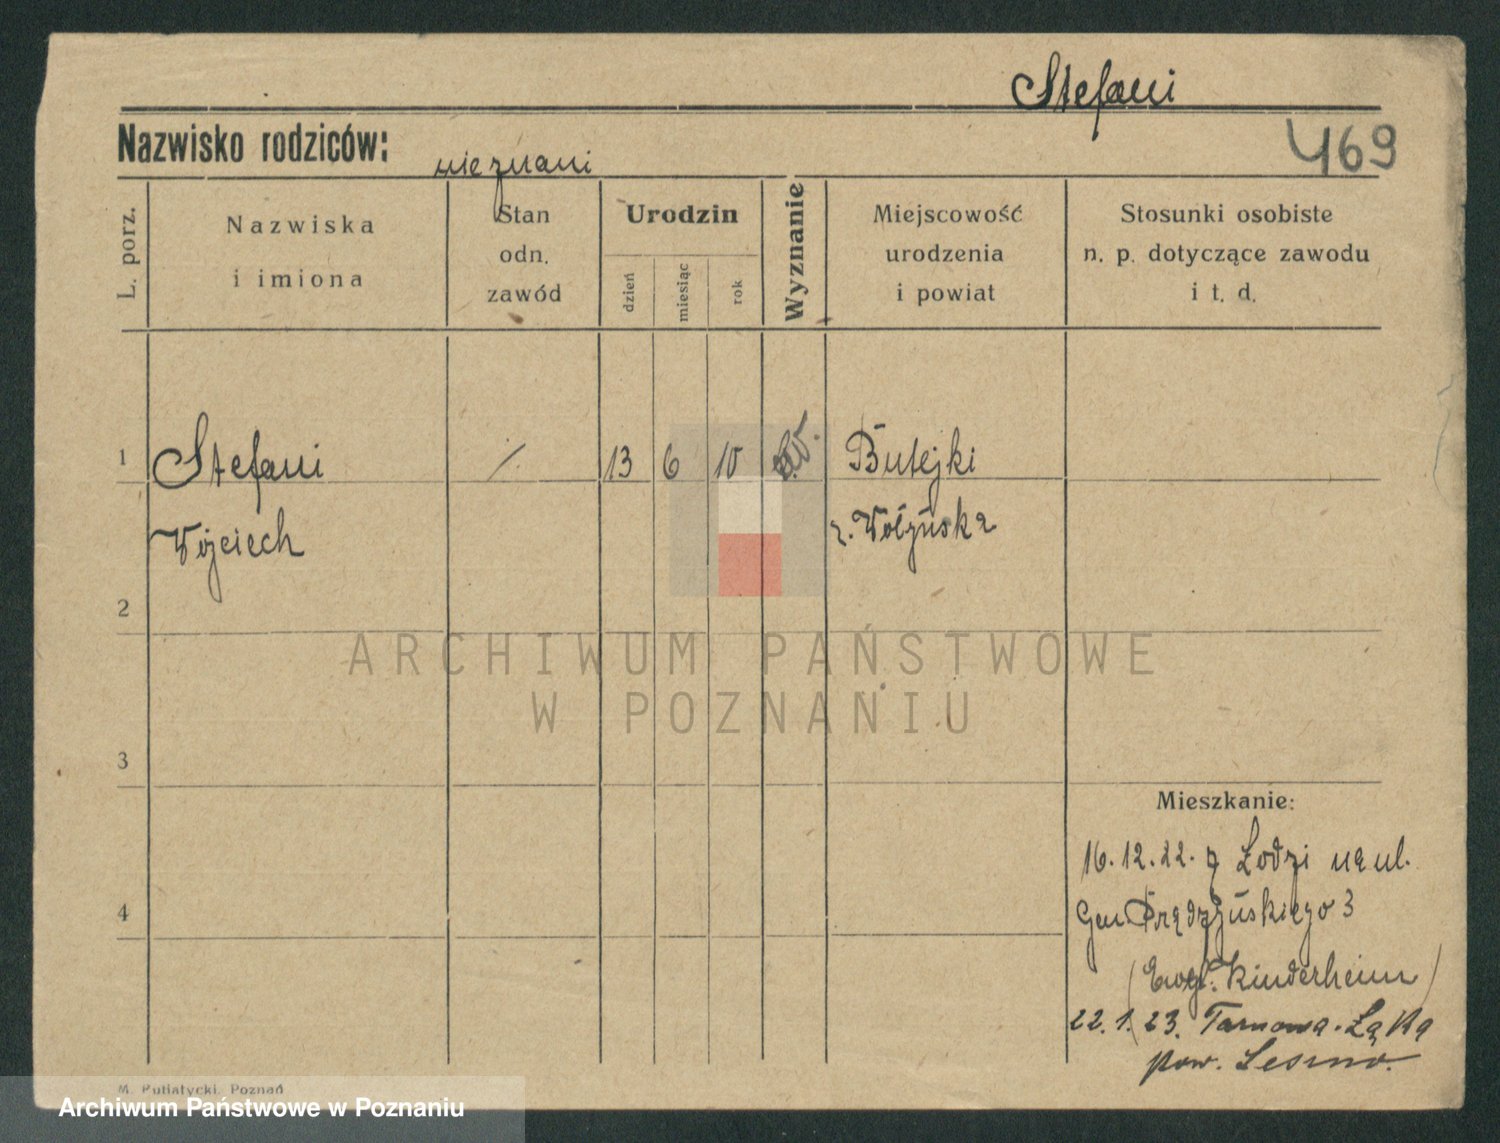 Stefani
469
Nazwisko rodziców: nieznani
L. porz.
Nazwiska
i imiona
Stan
odn.
zawód
Urodzin
dzień
miesiąc
rok
Wyznanie
Miejscowość
urodzenia
i powiat
Stosunki osobiste
n. p. dotyczące zawodu
i t. d.
1 Stefani 13 6 10 Butejki
Wojciech z. Wołyńska
2
3
4
Mieszkanie:
16.12.22. z Łodzi na ul.
Gen. Prądzyńskiego 3
(Ewgl. Kinderheim)
22.1.23. Tarnowa-Łąka
pow. Leszno.
M. Putiatycki, Poznań
ARCHIWUM PAŃSTWOWE
W POZNANIU
Archiwum Państwowe w Poznaniu